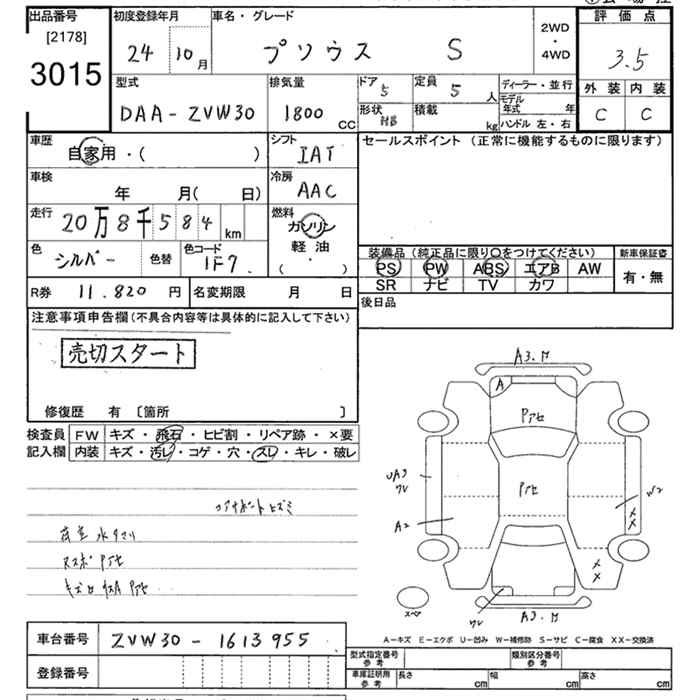 出品番号
[2178]
3015
初度登録年月
24 10月
車名・グレード
プソウス S
2WD
・
4WD
評価点
3.5
外装 内装
C C
型式
DAA-ZVW30
排気量
1800 CC
ドア 5
形状
定員 5 人
積載 kg
ディーラー・並行
モデル年式 年
ハンドル 左・右
車歴
自家用・( )
シフト
IAT
セールスポイント (正常に機能するものに限ります)
車検
年 月( 日)
冷房
AAC
走行
20万8千584 km
燃料
ガソリン
軽油・
( )
色
シルバー
色替
色コード
1F7
装備品(純正品に限り○をつけてください)
PS PW ABS エアB AW
SR ナビ TV カワ
新車保証書
有・無
R券 11.820 円
名変期限 月 日
後日品
注意事項申告欄(不具合内容等は具体的に記入して下さい)
売切スタート
修復歴 有 〔箇所 〕
検査員
記入欄
FW キズ・飛石・ヒビ割・リペア跡・×要
内装 キズ・汚レ・コゲ・穴・スレ・キレ・破レ
コアサポートヒズミ
A3.
A
Pアセ
Pアセ
UA3
ワレ
A2
W2
××
××
スペア
ワレ
A3.
A－キズ E－エクボ U－凹み W－補修跡 S－サビ C－腐食 XX－交換済
車台番号 ZVW30-1613955
登録番号
型式指定番号
参考
類別区分番号
参考
車庫証明用
参考
長さ cm 幅 cm 高さ cm